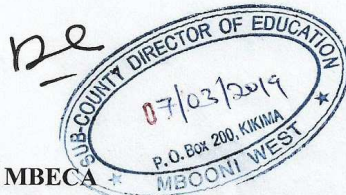 SUB-COUNTY DIRECTOR OF EDUCATION
07/03/2019
P.O. Box 200, KIKIMA
MBOONI WEST
MBECA